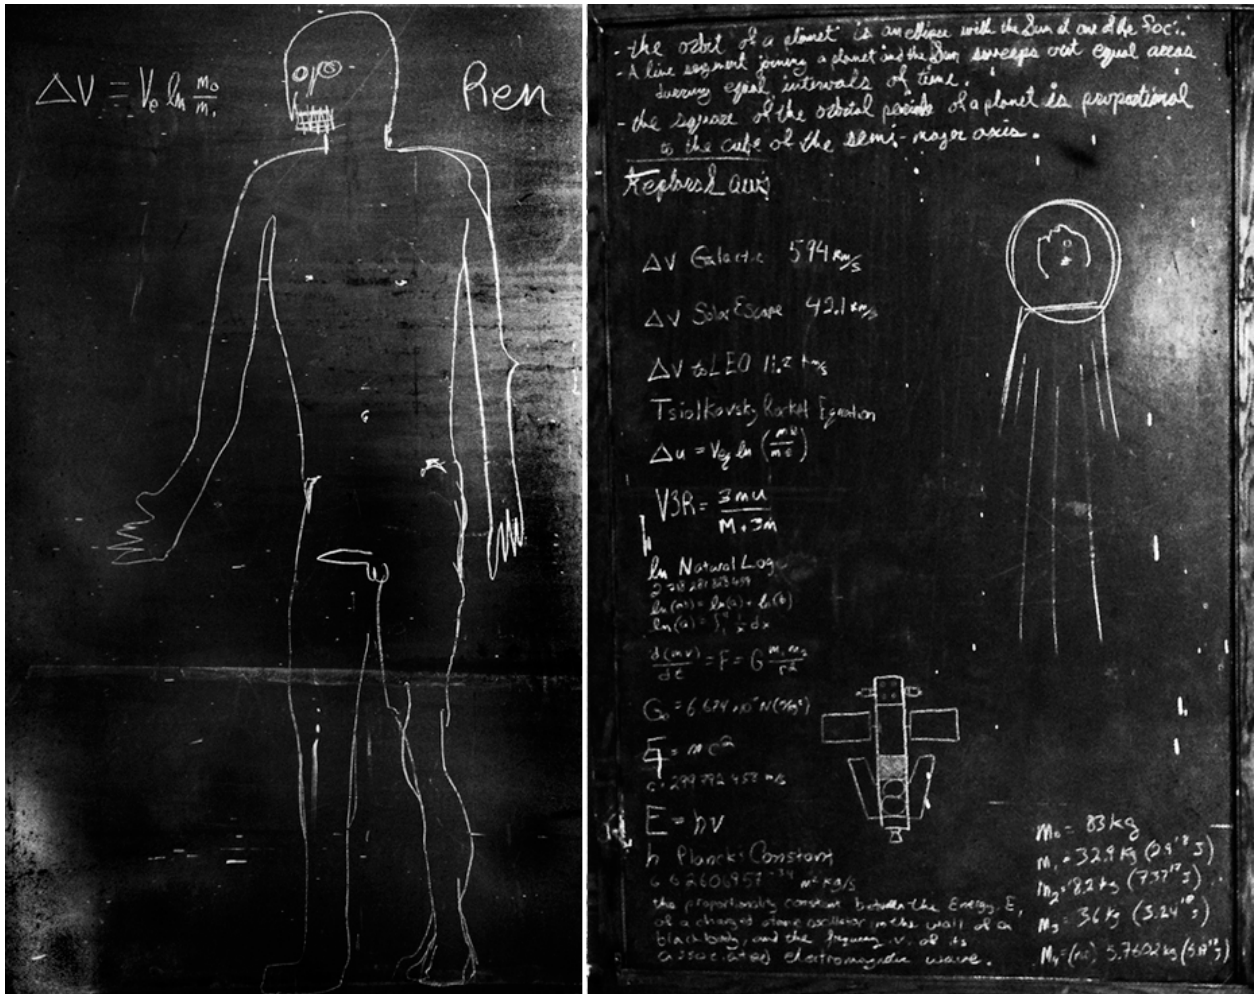 ΔV = Ve ln m0/m1
Ren
- the orbit of a planet is an ellipse with the Sun at one of the foci.
- A line segment joining a planet and the Sun sweeps out equal areas
during equal intervals of time.
- the square of the orbital period of a planet is proportional
to the cube of the semi-major axis.
Keplars Laws
ΔV Galactic 594 km/s
ΔV Solar Escape 42.1 km/s
ΔV to LEO 11.2 km/s
Tsiolkovsky Rocket Equation
Δu = Veq ln
V3R = 3mu / M+3m
ln Natural Log
ln(a) = ∫ 1/x dx
d(mv)/dt = F = G m1 m2/r2
E = mc2
c = 299 792 458 m/s
E = hv
h Planck's Constant
6.62606957 -34 m2 kg/s
the proportionality constant between the Energy, E,
of a charged atomic oscillator in the wall of a
blackbody, and the frequency, v, of its
associated electromagnetic wave.
m0 = 83 kg
m1 = 32.9 kg
m2 = 8.2 kg
m3 = 36 kg
m4 = 5.7602 kg